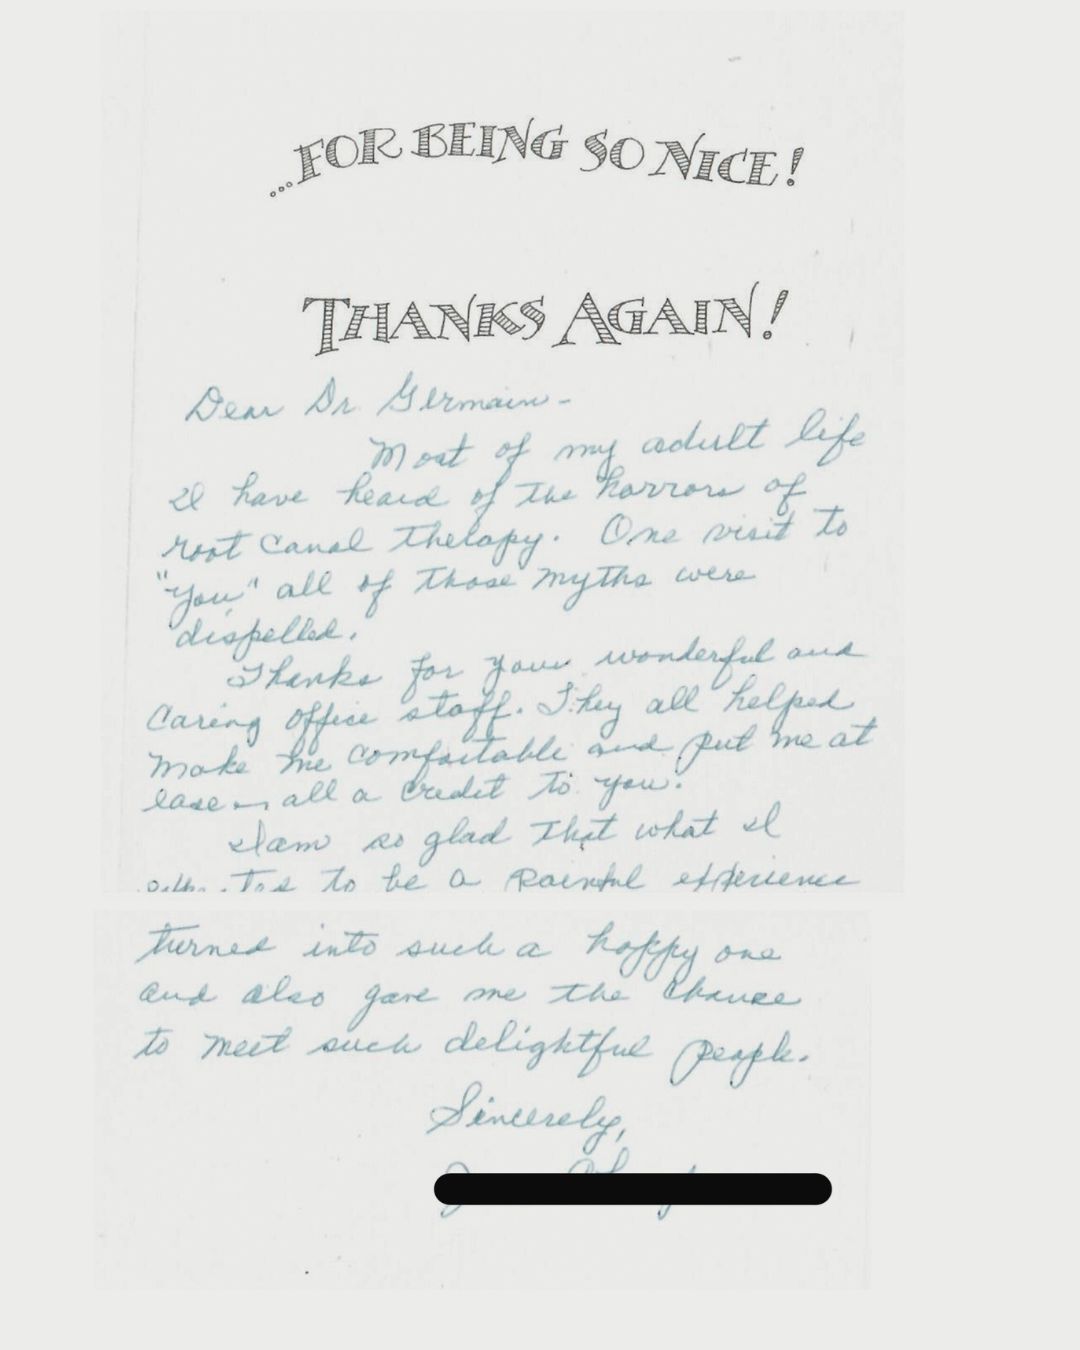 ...FOR BEING SO NICE!
THANKS AGAIN!
Dear Dr. Germain -
Most of my adult life
I have heard of the horrors of
root canal therapy. One visit to
"you" all of those myths were
dispelled.
Thanks for your wonderful and
caring office staff. They all helped
make me comfortable and put me at
ease - all a credit to you.
I am so glad that what I
to be a painful experience
turned into such a happy one
and also gave me the chance
to meet such delightful people.
Sincerely,